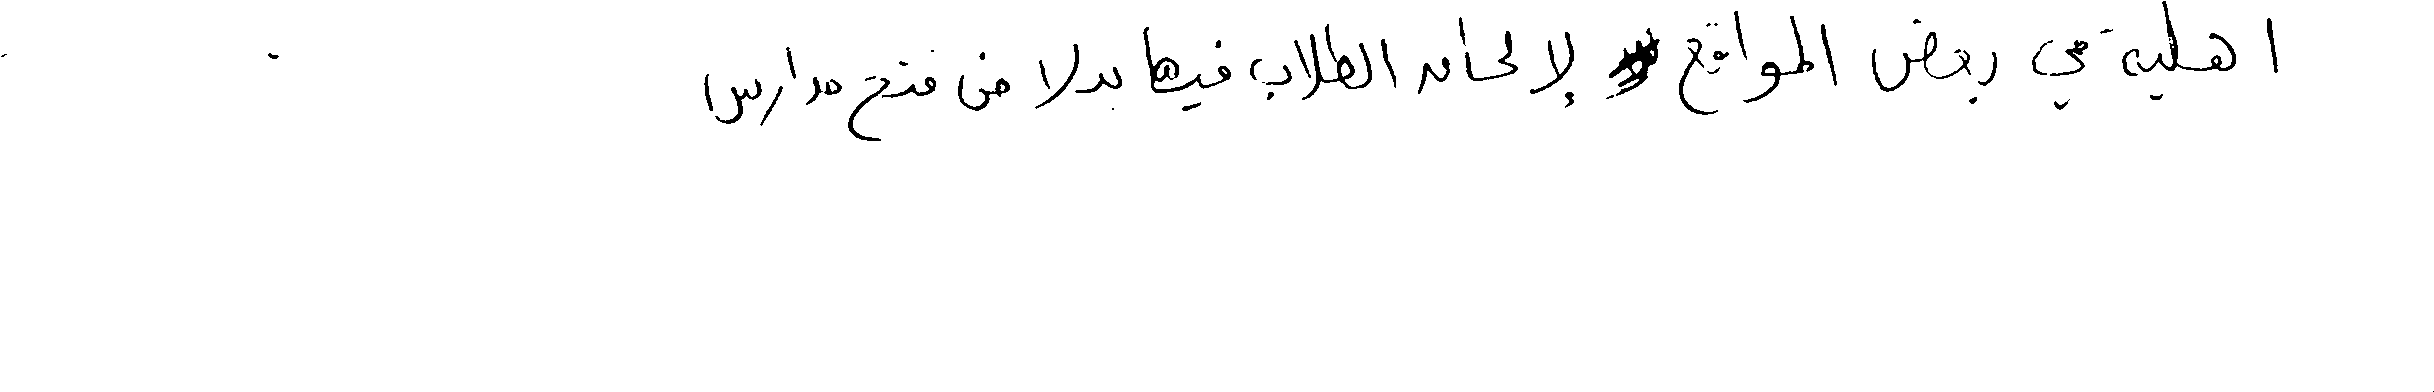 اهلية في بعض المواقع لإلحاق الطلاب فيها بدلا من فتح مدارس